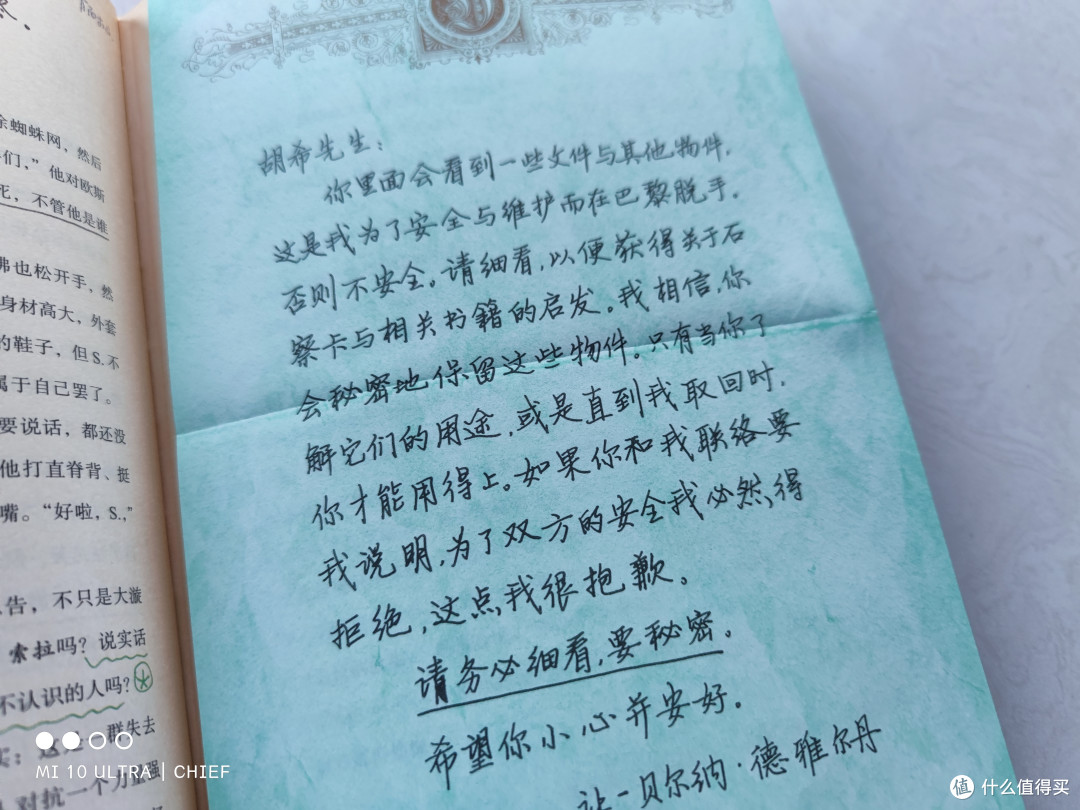 蜘蛛网，然后
们，”他对欧斯
死，不管他是谁
佛也松开手，然
身材高大，外套
的鞋子，但S.不
属于自己罢了。
要说话，都还没
他打直脊背、挺
嘴。“好啦，S.，”
告，不只是大漩
索拉吗？说实话
不认识的人吗？
群失去
对抗一个力量强
胡希先生：
你里面会看到一些文件与其他物件，
这是我为了安全与维护而在巴黎脱手。
否则不安全。请细看，以便获得关于石
察卡与相关书籍的启发。我相信，你
会秘密地保留这些物件。只有当你了
解它们的用途，或是直到我取回时，
你才能用得上。如果你和我联络要
我说明，为了双方的安全我必然得
拒绝，这点我很抱歉。
请务必细看，要秘密。
希望你小心并安好。
让-贝尔纳·德雅尔丹
MI 10 ULTRA | CHIEF
值 什么值得买